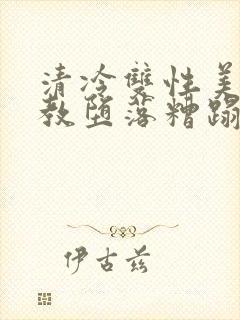 清冷雙性美
教墮落糟蹋
伊古兹